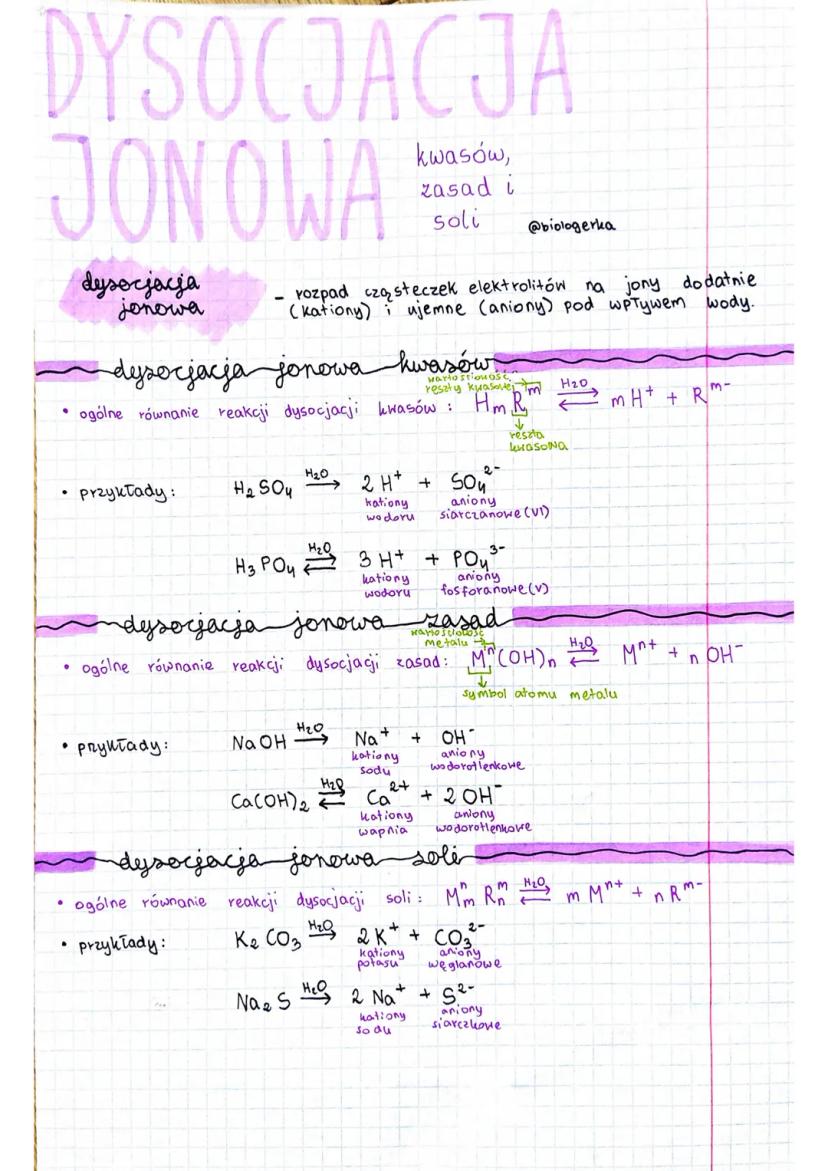 DYSOCJACJA
JONOWA
kwasów,
zasad i
soli
@biologerka
dysocjacja
jonowa
- rozpad cząsteczek elektrolitów na jony dodatnie
(kationy) i ujemne (aniony) pod wpływem wody.
dysocjacja jonowa kwasów
wartościowość
reszty kwasowej
• ogólne równanie reakcji dysocjacji kwasów : HₘRᵐ ⇄ (H₂O) m H⁺ + Rᵐ⁻
reszta
kwasowa
• przykłady: H₂SO₄ → (H₂O) 2 H⁺ + SO₄²⁻
kationy wodoru aniony siarczanowe (VI)
H₃PO₄ ⇄ (H₂O) 3 H⁺ + PO₄³⁻
kationy wodoru aniony fosforanowe (V)
dysocjacja jonowa zasad
wartościowość
metalu →
• ogólne równanie reakcji dysocjacji zasad: Mⁿ(OH)ₙ ⇄ (H₂O) Mⁿ⁺ + n OH⁻
symbol atomu metalu
• przykłady: NaOH → (H₂O) Na⁺ + OH⁻
kationy sodu aniony wodorotlenkowe
Ca(OH)₂ ⇄ (H₂O) Ca²⁺ + 2 OH⁻
kationy wapnia aniony wodorotlenkowe
dysocjacja jonowa soli
• ogólne równanie reakcji dysocjacji soli: MₘⁿRₙᵐ ⇄ (H₂O) m Mⁿ⁺ + n Rᵐ⁻
• przykłady: K₂CO₃ → (H₂O) 2 K⁺ + CO₃²⁻
kationy potasu aniony węglanowe
Na₂S → (H₂O) 2 Na⁺ + S²⁻
kationy sodu aniony siarczkowe